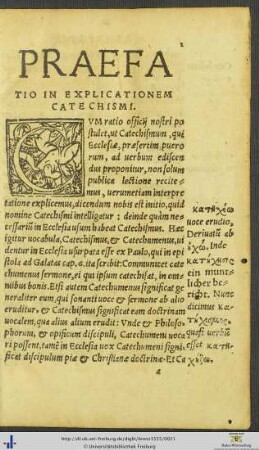 PRAEFA
TIO IN EXPLICATIONEM
CATECHISMI.
CVM ratio officij nostri po
stulet, ut Catechismum, qui
Ecclesiæ, præsertim puero
rum, ad uerbum ediscen
dus proponitur, non solum
publica lectione recite
mus, uerumetiam interpre
tatione explicemus, dicendum nobis est initio, quid
nomine Catechismi intelligatur: deinde quàm ne=
cessariũ in Ecclesia usum habeat Catechismus. Hæc
igitur uocabula, Catechismus, & Catechumenus, ui
dentur in Ecclesiæ usurpata esse ex Paulo, qui in epi
stola ad Galatas cap. 6. ita scribit: Communicet cate
chumenus sermone, ei qui ipsum catechisat, in om=
nibus bonis. Etsi autem Catechumenus significat ge
neraliter eum, qui sonanti uoce & sermone ab alio
eruditur, & Catechismus significat eam doctrinam
uocalem, qua alius alium erudit: Vnde & Philoso=
phorum, & opificum discipuli, Catechumeni uoca
ri possent, tamẽ in Ecclesia uox Catechumeni signi
ficat discipulum piæ & Christianæ doctrinæ. Et Ca
a
κατηχέω
uoce erudio.
Deriuatũ ab
ἠχώ. Inde
κατήχησις
ein munt=
licher be=
richt. Nunc
dicimus κατ
quasi uerbũ
esset κατη
χίζω.
http://dl.ub.uni-freiburg.de/diglit/
© Universitätsbibliothek Freiburg